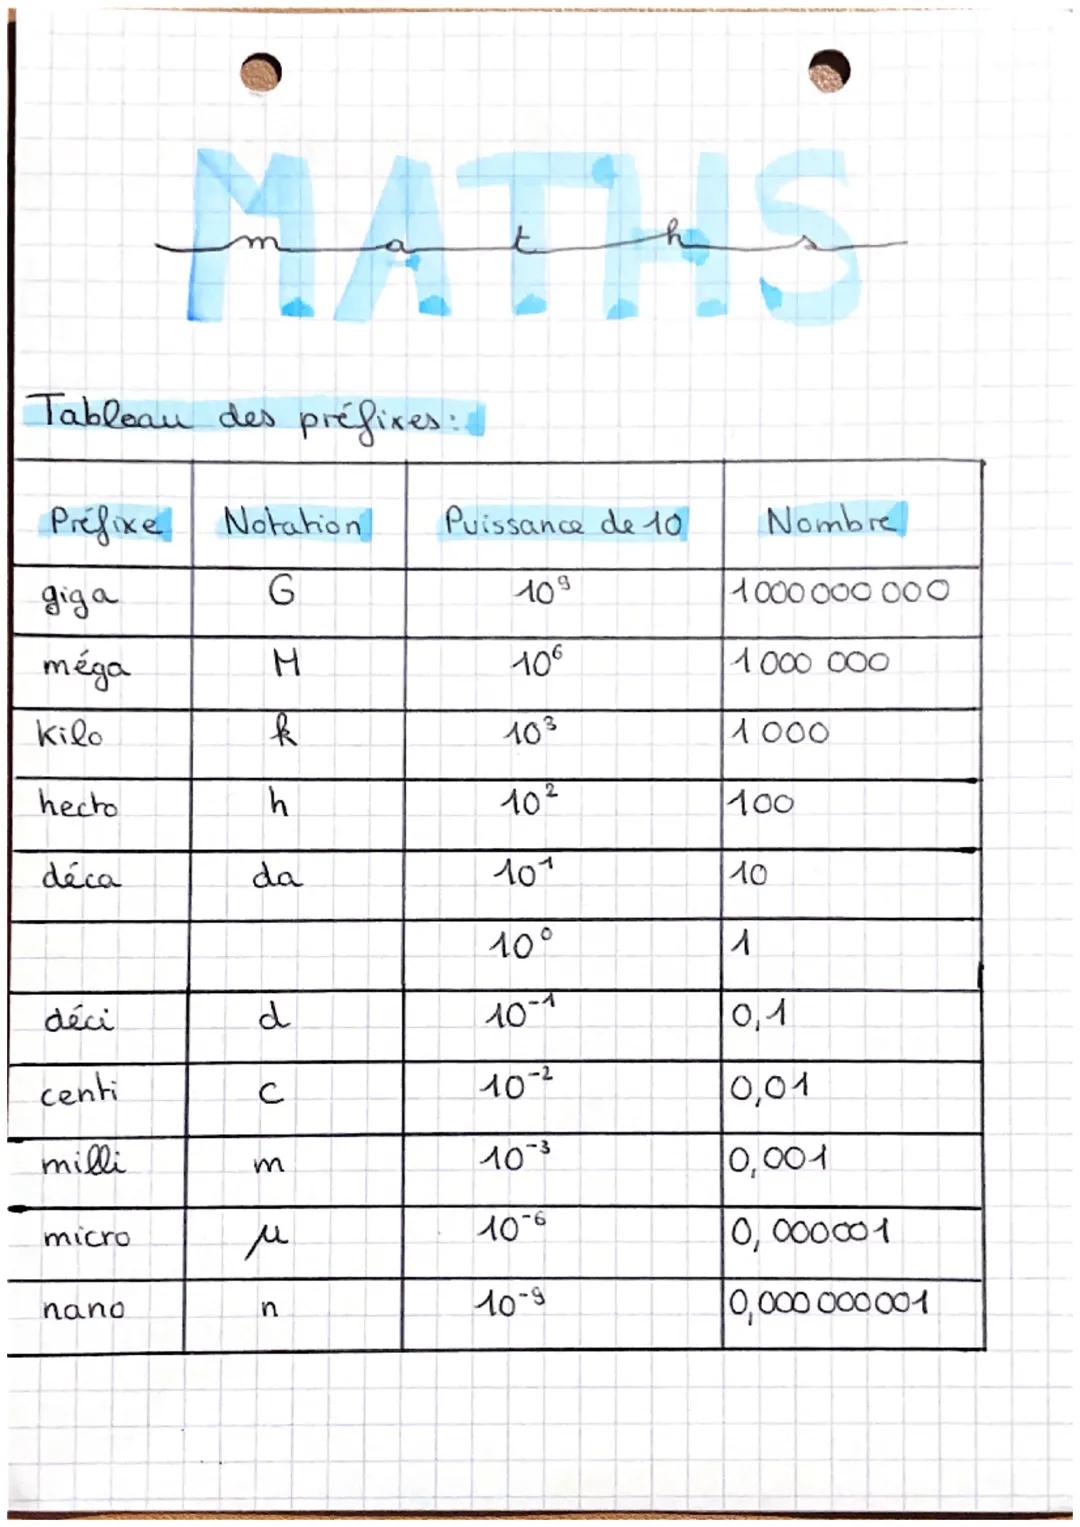 MATHS
maths
Tableau des préfixes:
Préfixe Notation Puissance de 10 Nombre
giga G 10⁹ 1000 000 000
méga M 10⁶ 1 000 000
kilo k 10³ 1 000
hecto h 10² 100
déca da 10¹ 10
10⁰ 1
déci d 10⁻¹ 0,1
centi c 10⁻² 0,01
milli m 10⁻³ 0,001
micro µ 10⁻⁶ 0, 000001
nano n 10⁻⁹ 0,000 000 001